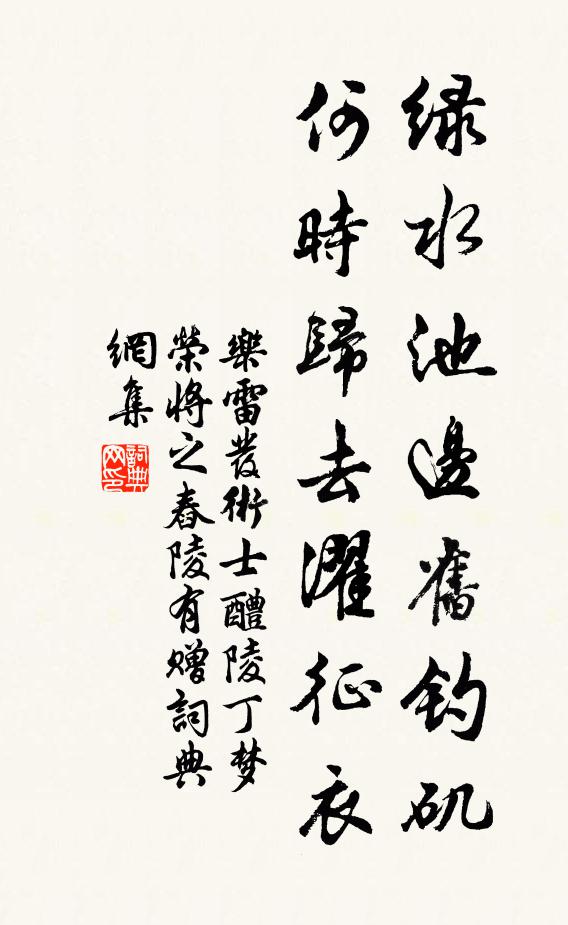 绿水池邊舊钓矶
何時歸去濯征衣
樂雷發術士醴陵丁梦
榮将之舂陵有赠詞典
網集
詞典网印